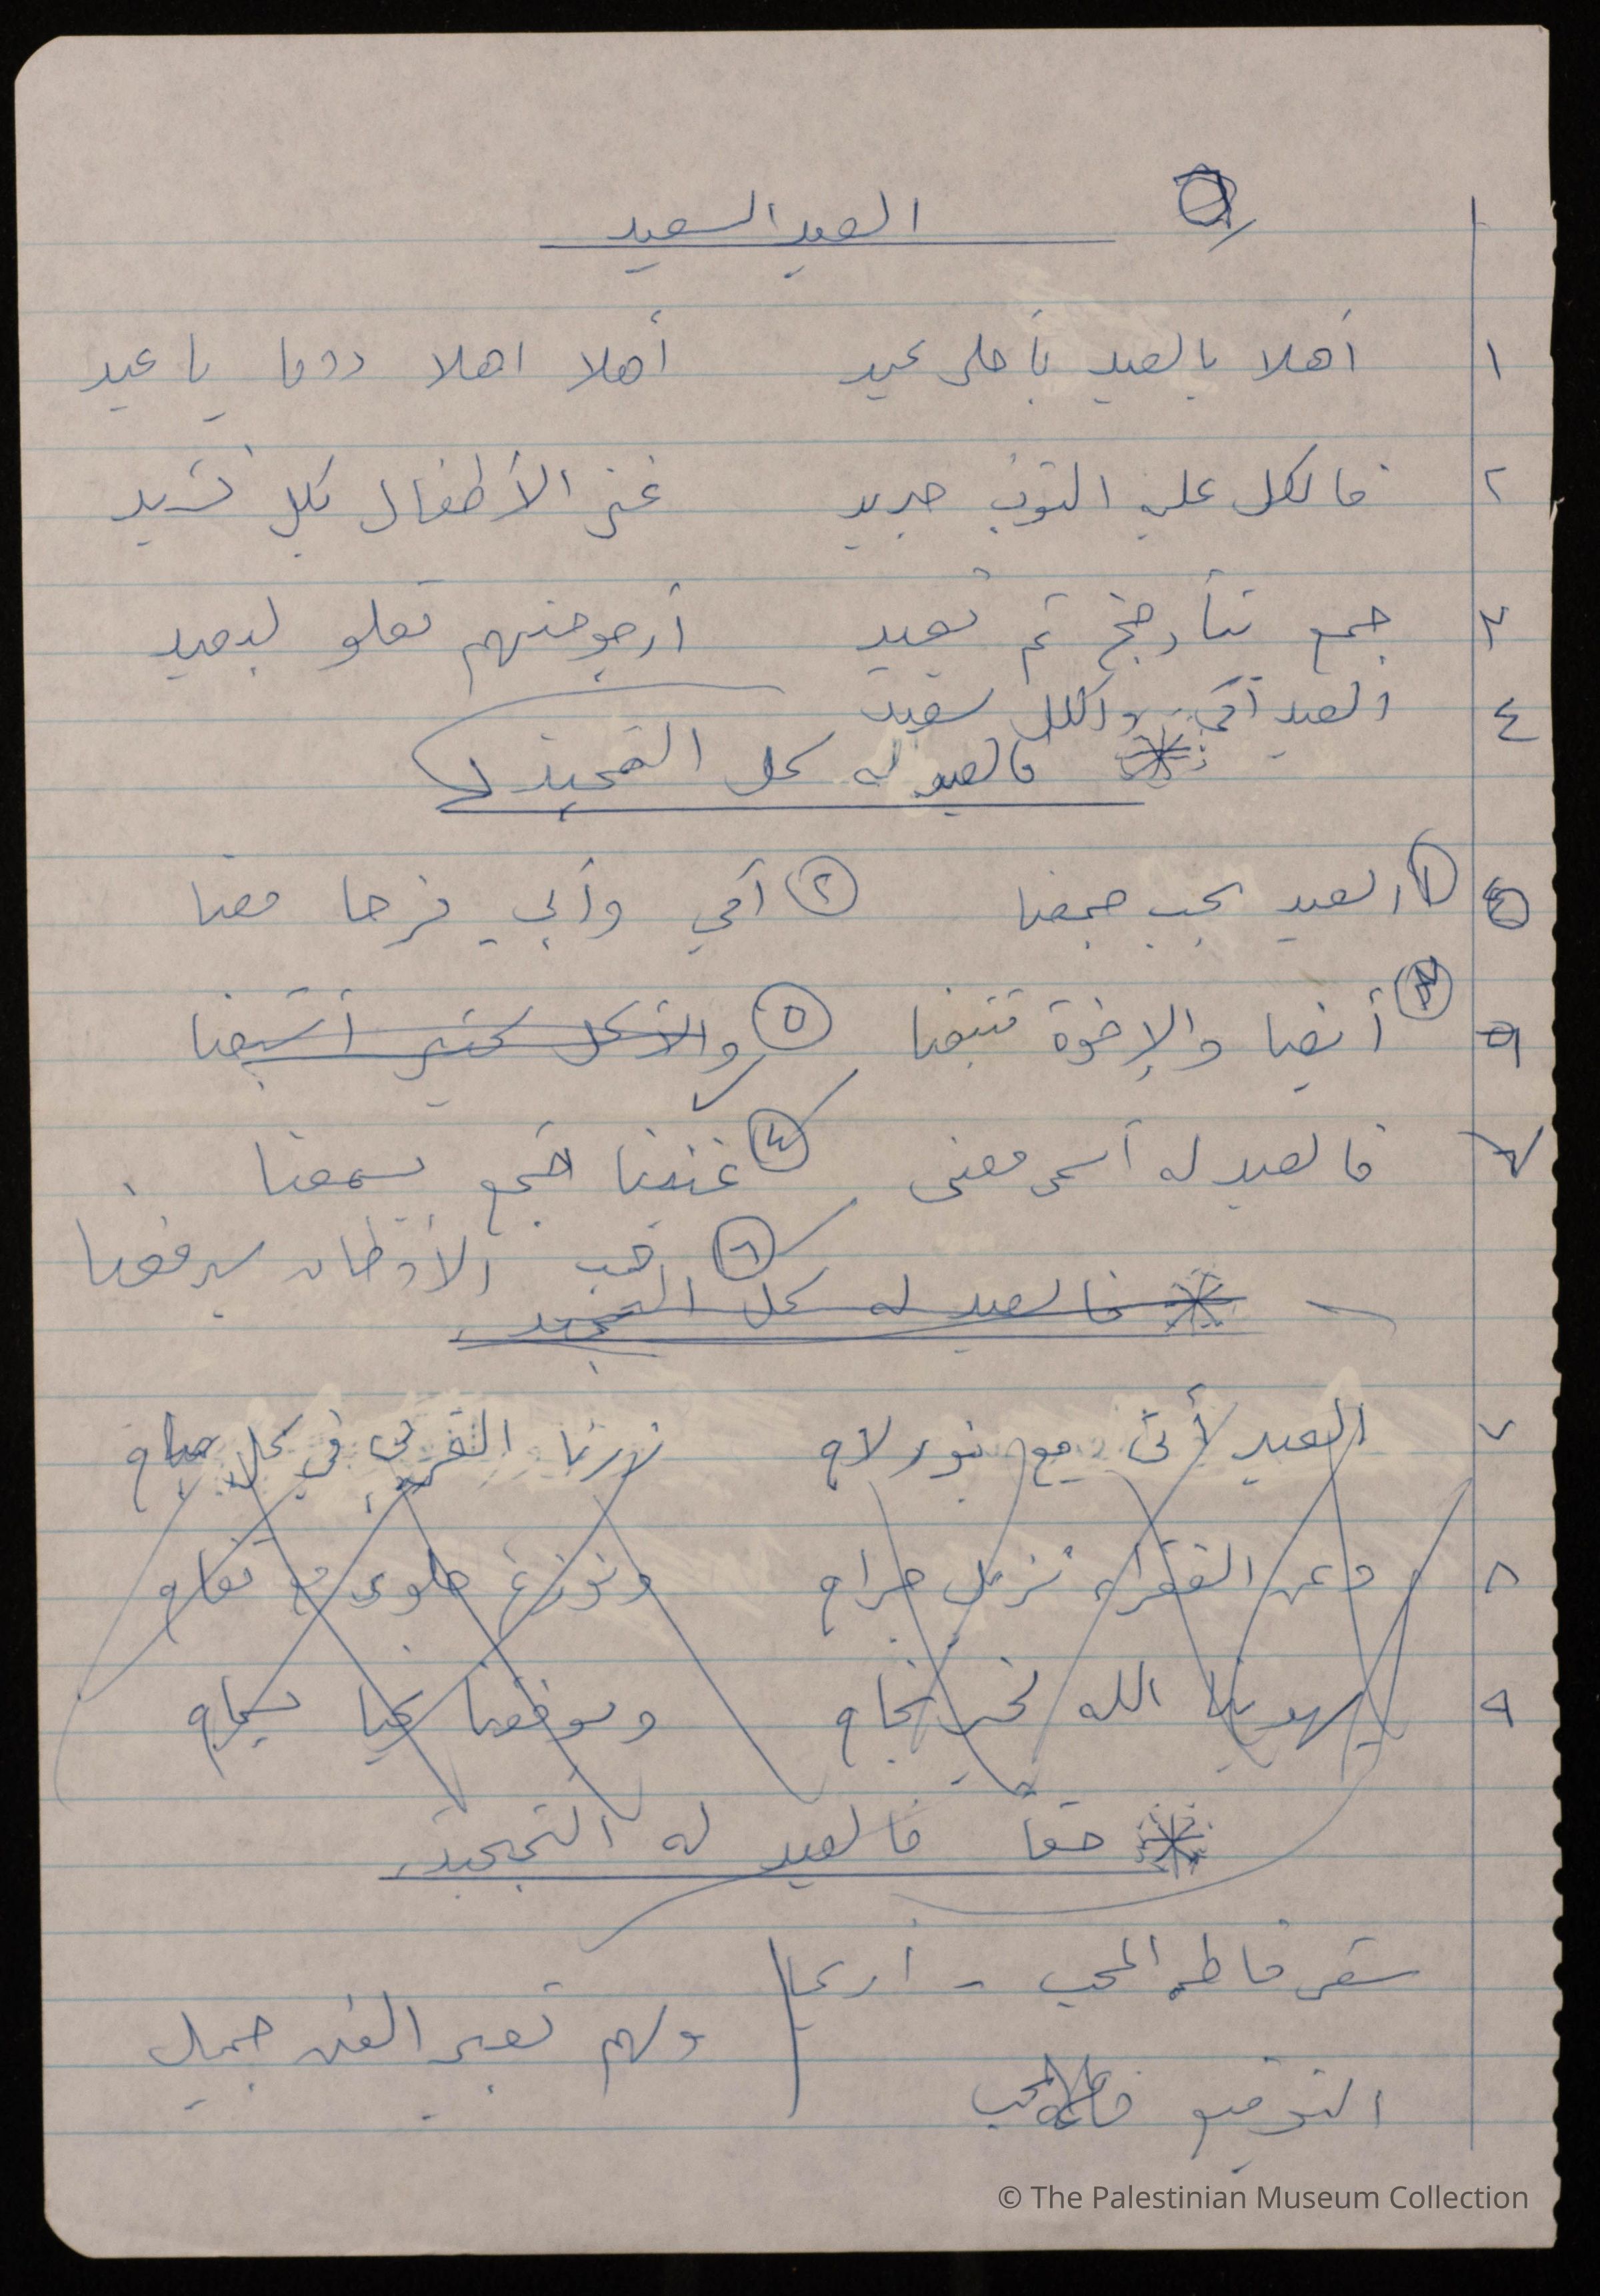 العيد السعيد
١ أهلا بالعيد بأحلى عيد أهلا اهلا دوما يا عيد
٢ فالكل عليه الثوب جديد غنى الأطفال بكل نشيد
٣ جمع تتأرجح ثم تعيد أرجوحتهم تعلو لبعيد
٤ العيد أتى والكل سعيد
فالعيد له كل التمجيد
١ العيد بحب جمعنا ٢ أمي وأبي فرحا معنا
٣ أيضا والإخوة تتبعنا ٥ والأكل كثير أشبعنا
فالعيد له أسمى معنى ٤ غنينا الجمع يسمعنا
٦ حب الأوطان سيرفعنا
فالعيد له كل التمجيد
٧ العيد أتى مع نور لاح زرنا القربى في كل صباح
٨ وعن الفقراء نزيل جراح ونوزع حلوى مع تفاح
٩ يهدينا الله لخير نجاح ويوفقنا نحيا بسماح
حقاً فالعيد له التمجيد
شعر فاطمه المحب - أريحا
ولهم تعبير الفن جميل
التوقيع فاطمة المحب
© The Palestinian Museum Collection